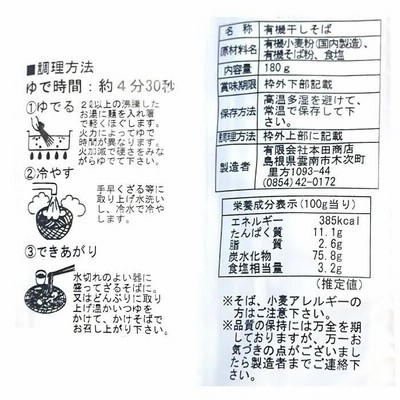 ■調理方法
ゆで時間：約4分30秒
①ゆでる
2ℓ以上の沸騰した
お湯に麺を入れ箸
で軽くほぐします。
火力によってゆで
時間が異なります。
火加減で硬さをみな
がらゆでて下さい。
②冷やす
手早くざる等に
取り上げ水洗い
し、冷水で冷や
します。
③できあがり
水切れのよい器に
盛ってざるそばに。
又はどんぶりに取り
上げ温かいつゆを
かけて、かけそばで
お召し上がり下さい。
名称 有機干しそば
原材料名 有機小麦粉(国内製造)、
有機そば粉、食塩
内容量 180g
賞味期限 枠外下部記載
保存方法 高温多湿を避けて、
常温で保存して下さい。
調理方法 枠外上部に記載
製造者 有限会社本田商店
島根県雲南市木次町
里方1093-44
(0854)42-0172
栄養成分表示(100g当り)
エネルギー 385kcal
たんぱく質 11.1g
脂質 2.6g
炭水化物 75.8g
食塩相当量 3.2g
(推定値)
※そば、小麦アレルギーの
方はご注意下さい。
※品質の保持には万全を期
しておりますが、万一お
気づきの点がございまし
たら製造者までご連絡下